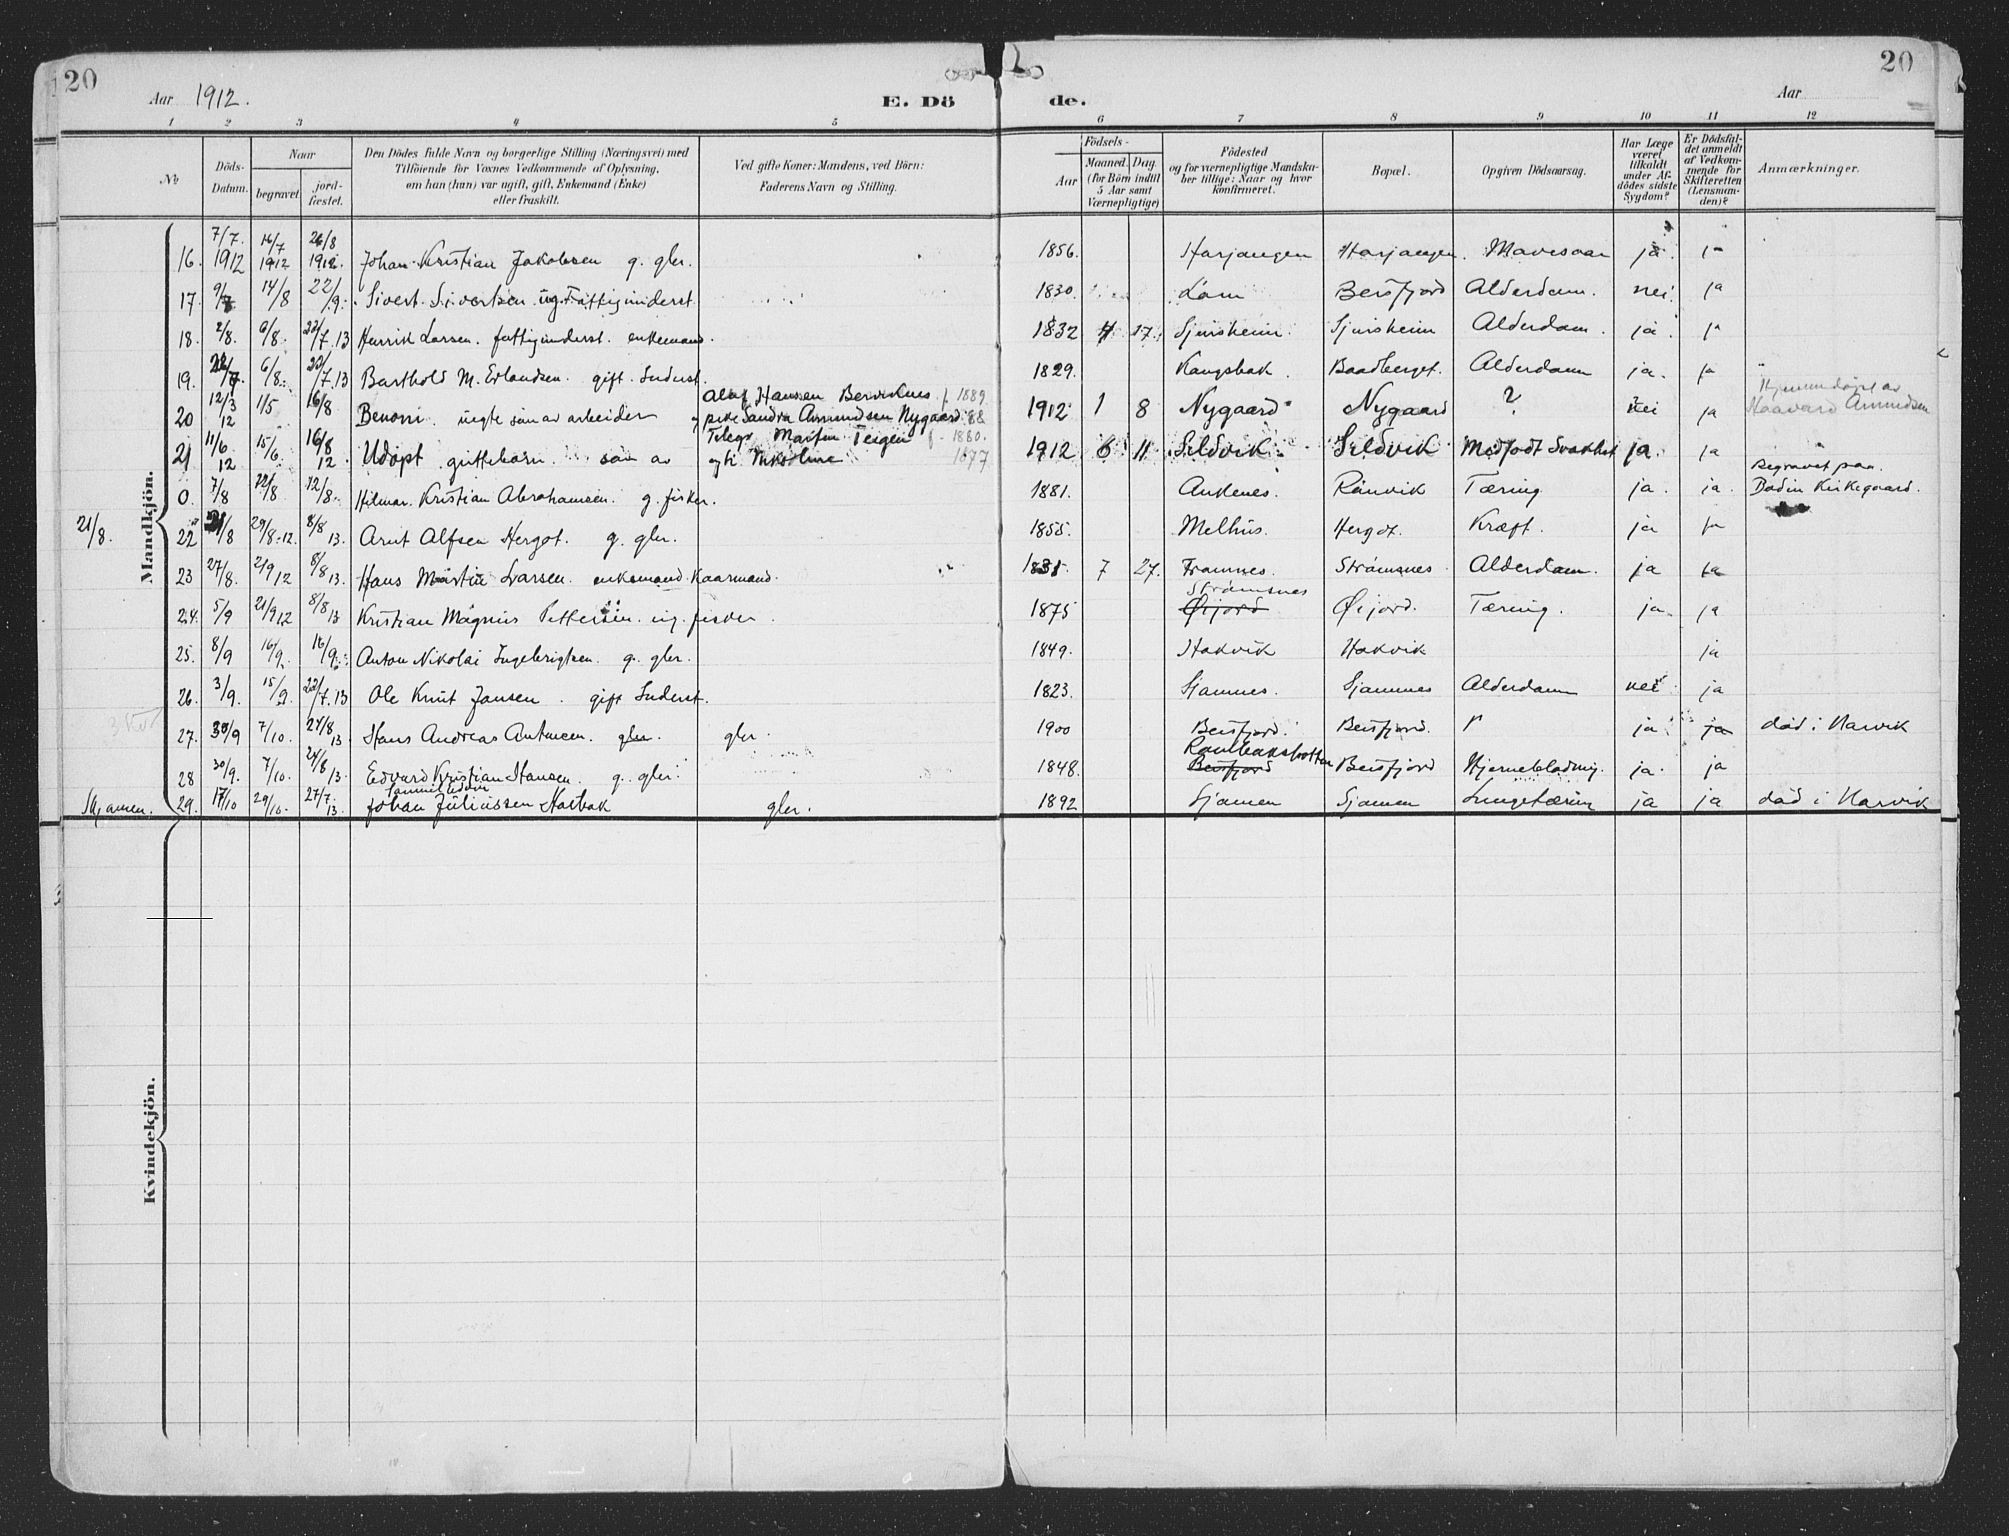 20
Aar 1912.
E. Dö de.
Aar
20
1 2 3 4 5 6 7 8 9 10 11 12
No
Döds-Datum.
Naar
begravet
jord-fæstet.
Den Dödes fulde Navn og borgerlige Stilling (Næringsvei) med
Tilföiende for Voxnes Vedkommende af Oplysning,
om han (hun) var ugift, gift, Enkemand (Enke)
eller fraskilt.
Ved gifte Koner: Mandens, ved Börn:
Faderens Navn og Stilling.
Födsels-
Aar
Maaned. Dag.
(for Börn indtil
5 Aar samt
Værnepligtige)
Födested
og for værnepligtige Mandska-
ber tillige: Naar og hvor
konfirmeret.
Bopæl.
Opgiven Dödsaarsag.
Har Læge
været
tilkaldt
under Af-
dödes sidste
Sygdom?
Er Dödsfal-
det anmeldt
af Vedkom-
mende for
Skifteretten
(Lensman-
den)?
Anmærkninger.
Mandkjön.
16. 7/7. 1912 16/7 1912 26/8 1912. Johan Kristian Jakobsen g. gbr. 1856. Harjangen Harjangen. Mavesaar ja
17. 9/7 14/8 22/9. Sivert Sivertsen ug. Fattigunderst. 1830. Lom Beisfjord Alderdom. nei. ja
18. 2/8. 6/8. 22/7.13 Henrik Larsen. fattigunderst. enkemand. 1832 4 17. Sjursheim. Sjursheim Alderdom. ja.
19. 6/8. 22/7.13 Barthold M. Erlandsen. gift. Underst. 1829. Baadberget. Alderdom ja. ja
20 12/3 12 1/5 16/8 Benoni. uegte søn av arbeider Olaf Hansen f. 1889
og pike Sandra Amundsen Nygaard. 88 1912 1 8 Nygaard Nygaard ? nei ja Haavard Amundsen
21 11/6 12 15/6 16/8 12. Udøpt guttebarn. søn av Telegr. Martin Teigen f. 1880.
og h. Nikoline 1877 1912 6 11 Sildvik. Sildvik Medfødt Svakhet ja. ja
0. 7/8 12/8 12/8. Hilmar Kristian Abrahamsen. g. fisker. 1881. Ankenes. Rånvik Tæring ja. ja. Begravet paa
Bodin Kirkegaard.
21/8. 22 21/8 29/8-12. 8/8 13. Arnt Alfsen Hergot. g. gbr. 1855. Melhus. Hergot. Kræft. ja ja
23 27/8. 2/9 12 8/8 13. Hans Martin Larsen. enkemand. Kaarmand. 1831 7 27. Framnes. Strømsnes Alderdom. ja ja
24. 5/9 21/9 12 8/8 13 Kristian Magnus Pettersen. ug. fisker. 1875 Strømsnes
Øijord Øijord. Tæring. ja. ja
25. 8/9 16/9 16/9. Anton Nikolai Ingebrigtsen. g. gbr. 1849. Hakvik Hakvik ja
26. 3/9. 15/9 22/7.13 Ole Knut Jansen. gift Underst. 1823. Sjamnes. Sjamnes Alderdom nei ja
27. 30/9 7/10. 24/8 13. Hans Andreas Antonsen. gbr. gbr. 1900 Beisfjord. Beisfjord. ja ja død i Narvik
28 30/9. 7/10. 24/8 13. Edvard Kristian Hansen. g. gbr. 1848. Rombaksbotten
Beisfjord Beisfjord Hjerneblødning. ja. ja
Skjomen. 29. 17/10 29/10. 27/7. 13. Johan Juliussen Norbak gbr. 1892 Sjomen Sjomen Lungetæring ja ja død i Narvik
Kvindekjön.